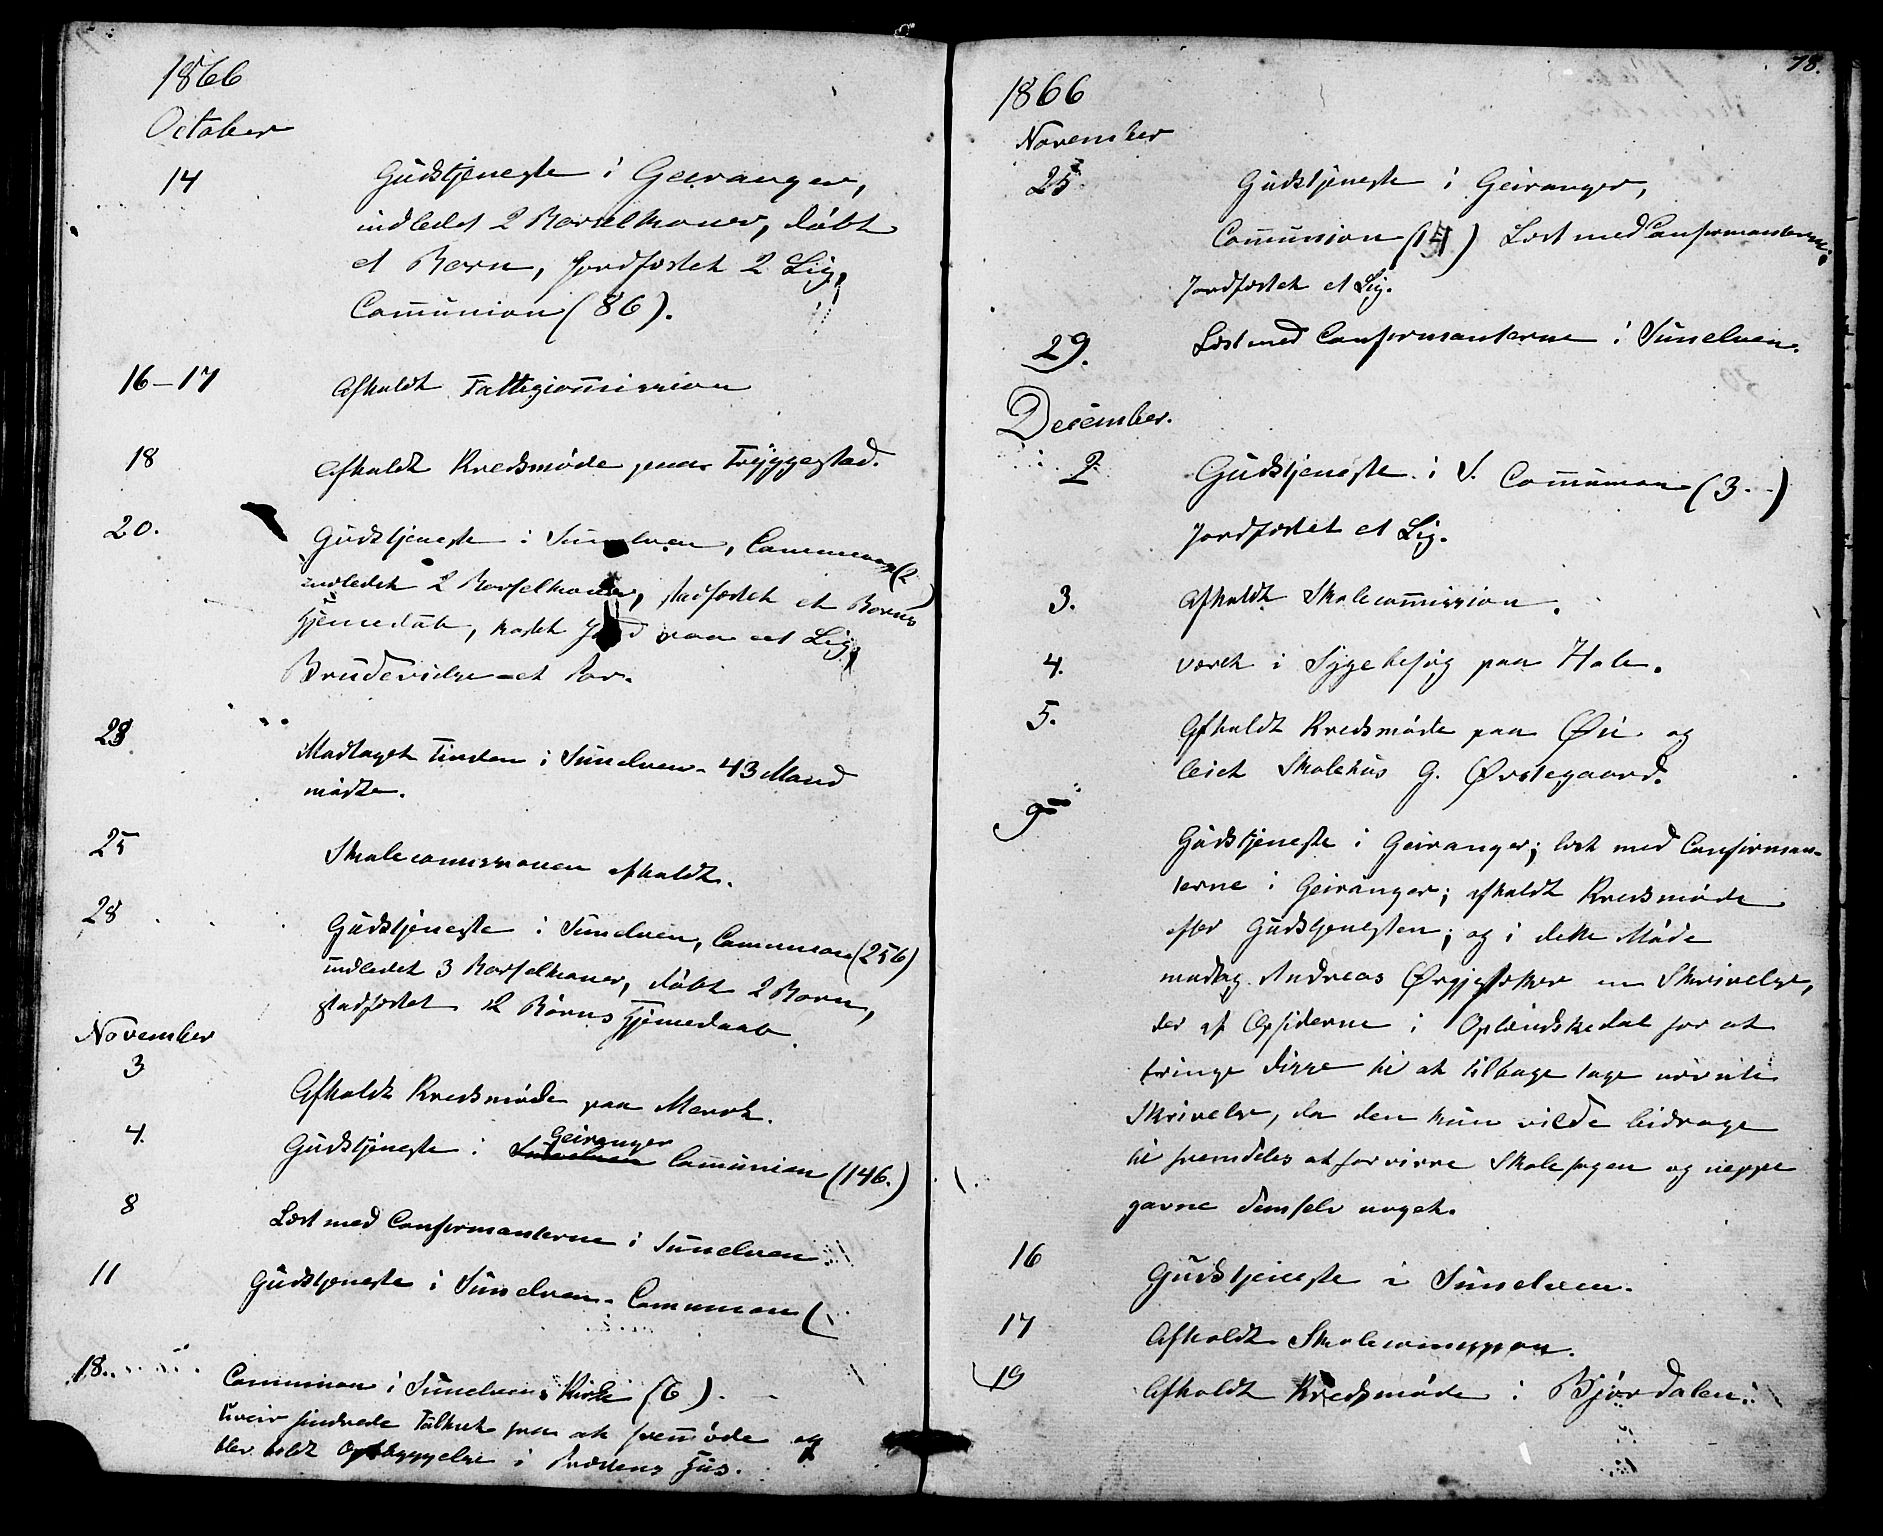 1866
October
14 Gudstjeneste i Geiranger,
indledet 2 Barselkoner, døbt
et Barn, Jordfæstet 2 Lig,
Communion (86).
16-17 Afholdt Fattigcommission
18 Afholdt Kredsmøde paa Tryggestad.
20. Gudstjeneste i Sunelven, Communion (2
indledet 2 Barselkoner, stadfæstet et Barns
Hjemedåb, kastet Jord paa et Lig,
Brudevielse et Par.
23 Modtaget Tienden i Sunelven. 43 Mand
mødte.
25 Skolecommissionen afholdt.
28 Gudstjeneste i Sunelven, Communion (256)
indledet 3 Barselkoner, døbt 2 Børn,
stadfæstet 2 Børns Hjemedaab.
November
3 Afholdt Kredsmøde paa Merok.
4. Gudstjeneste i Sunelven Geiranger Communion (146.)
8 Læst med Confirmanterne i Sunelven
11 Gudstjeneste i Sunelven. Communion (
18. Communion i Sunelvens Kirke (6).
Uveir hindrede Talket fra at fremmøde og
blev holdt Opbyggelse i Præstens Hus.
78.
1866
November
25. Gudstjeneste i Geiranger,
Communion (14) Læst med Confirmanterne,
Jordfæstet et Lig.
29. Læst med Confirmanterne i Sunelven.
December.
2. Gudstjeneste i S. Communion (3 )
Jordfæstet et Lig.
3. Afholdt Skolecommission.
4. været i Sygebesøg paa Hole.
5. Afholdt Kredsmøde paa Øie og
leiet Skolehus G. Ørstegaard.
9 Gudstjeneste i Geiranger; læst med Confirman-
terne i Geiranger; afholdt Kredsmøde
efter Gudstjenesten; og i dette Møde
modtog Andreas en Skrivelse,
der af Opsiderne i Oplendskedal for at
tvinge disse til at tilbage tage
Skrivelse, da den kun vilde bidrage
til fremdeles at forvirre Skolesagen og neppe
gavne demselv noget.
16 Gudstjeneste i Sunelven.
17 Afholdt Skolecommission.
19 Afholdt Kredsmøde i Bjørdalen.